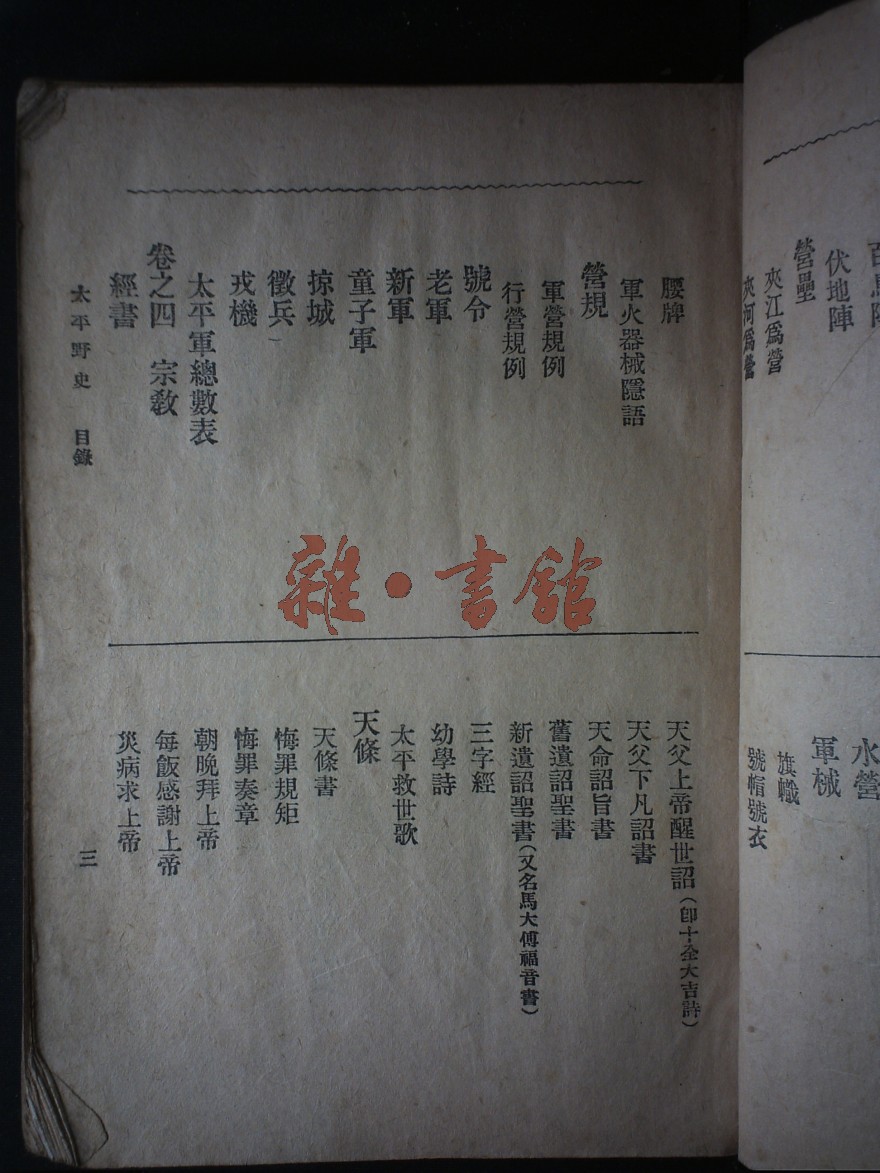 伏地陣
營壘
夾江爲營
夾河爲營
水營
軍械
旗幟
號帽號衣
腰牌
軍火器械隱語
營規
軍營規例
行營規例
號令
老軍
新軍
童子軍
掠城
徵兵
戎機
太平軍總數表
卷之四 宗教
經書
天父上帝醒世詔(卽十全大吉詩)
天父下凡詔書
天命詔旨書
舊遺詔聖書
新遺詔聖書(又名馬大傅福音書)
三字經
幼學詩
太平救世歌
天條
天條書
悔罪規矩
悔罪奏章
朝晚拜上帝
每飯感謝上帝
災病求上帝
太平野史 目錄
三
雜·書館